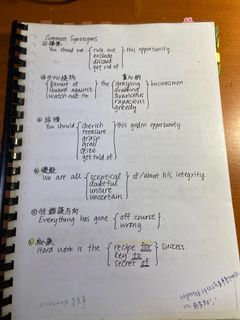 Common Synonyms
① 排除
You should not { rule out } this opportunity.
exclude
discard
get rid of
② 小心提防 貪心的
Beware of } the { grasping } businessmen.
Guard against
watch out for
grabbing
avaricious
rapacious
greedy
③ 珍惜
You should { cherish } this golden opportunity
treasure
grasp
grab
seize
get hold of
④ 懷疑
We are all { sceptical } of/about his integrity.
doubtful
unsure
uncertain
Everything has gone { off course
wrong
⑥ 秘訣
Hard work is the { recipe for } success.
key to
secret of